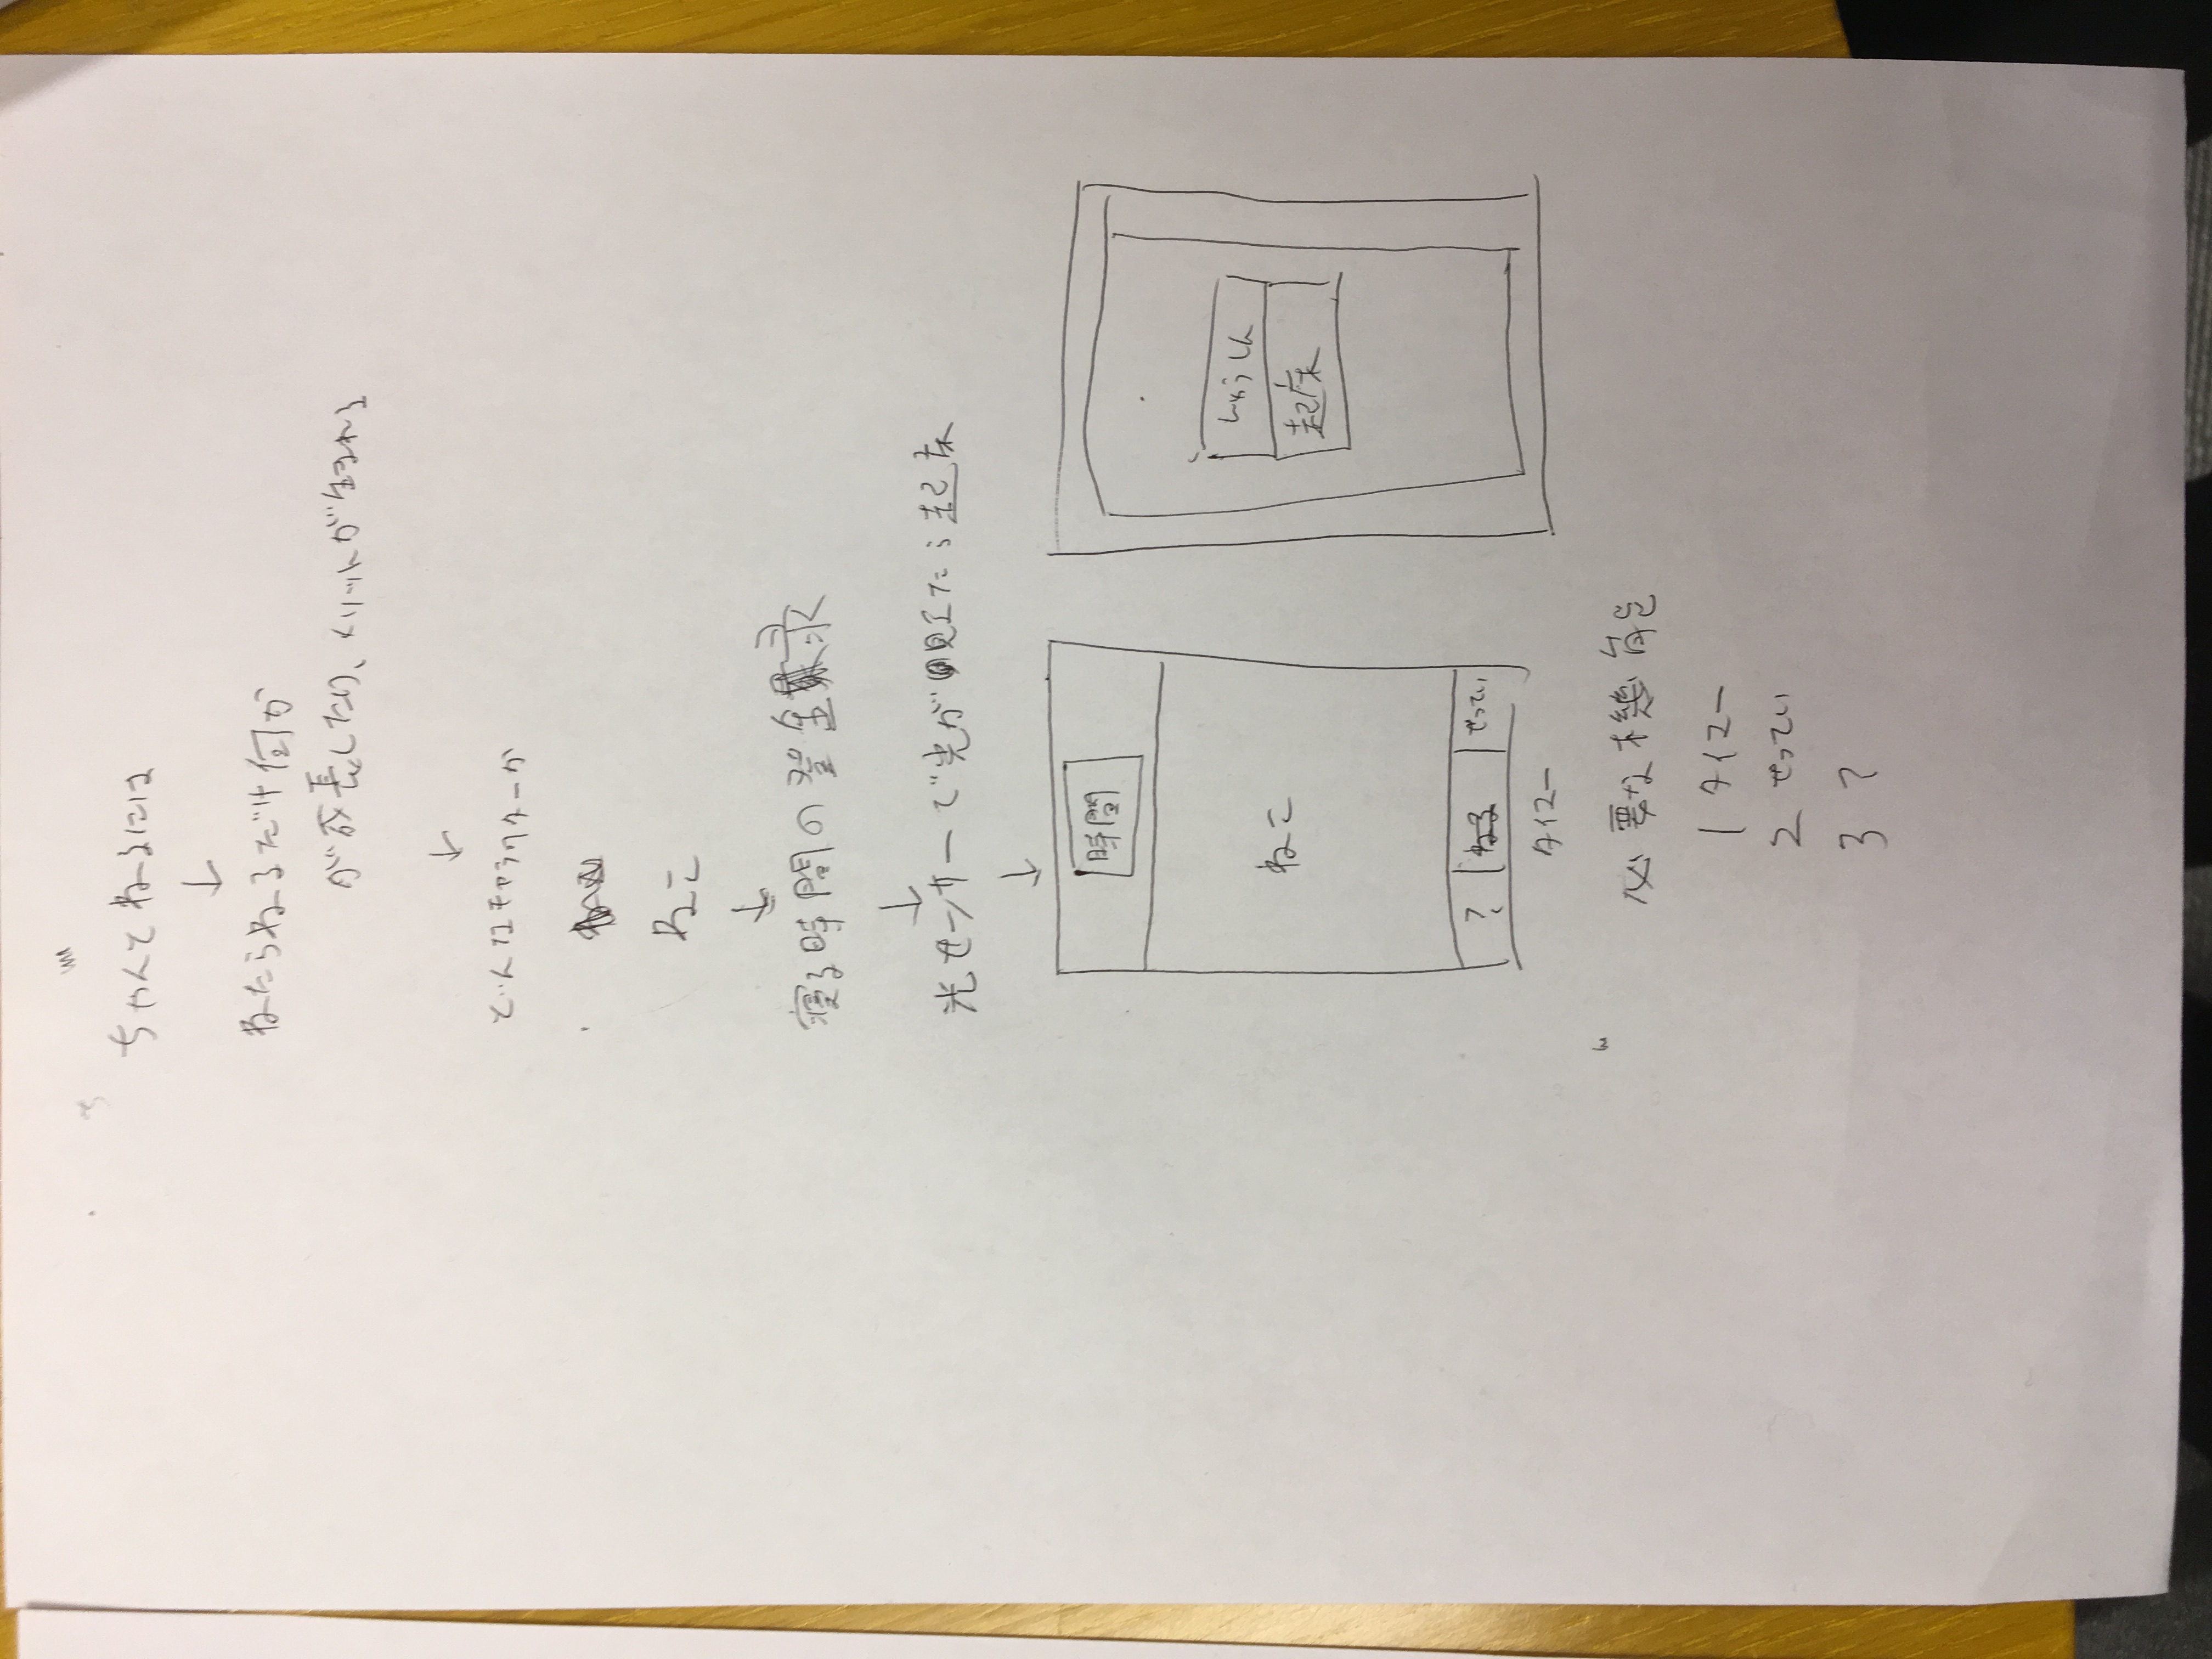 ちゃんとねるには
↓
ねたらねるだけ何か
が成長したり、メリットが生まれる
↓
どんなキャラクターか
ねこ
↓
寝る時間の登録
↓
光センサーで光が現れたら起床
↓
時間
ねこ
? ねる せってい
タイマー
しゅうしん
起床
必要な機能
1 タイマー
2 せってい
3 ?